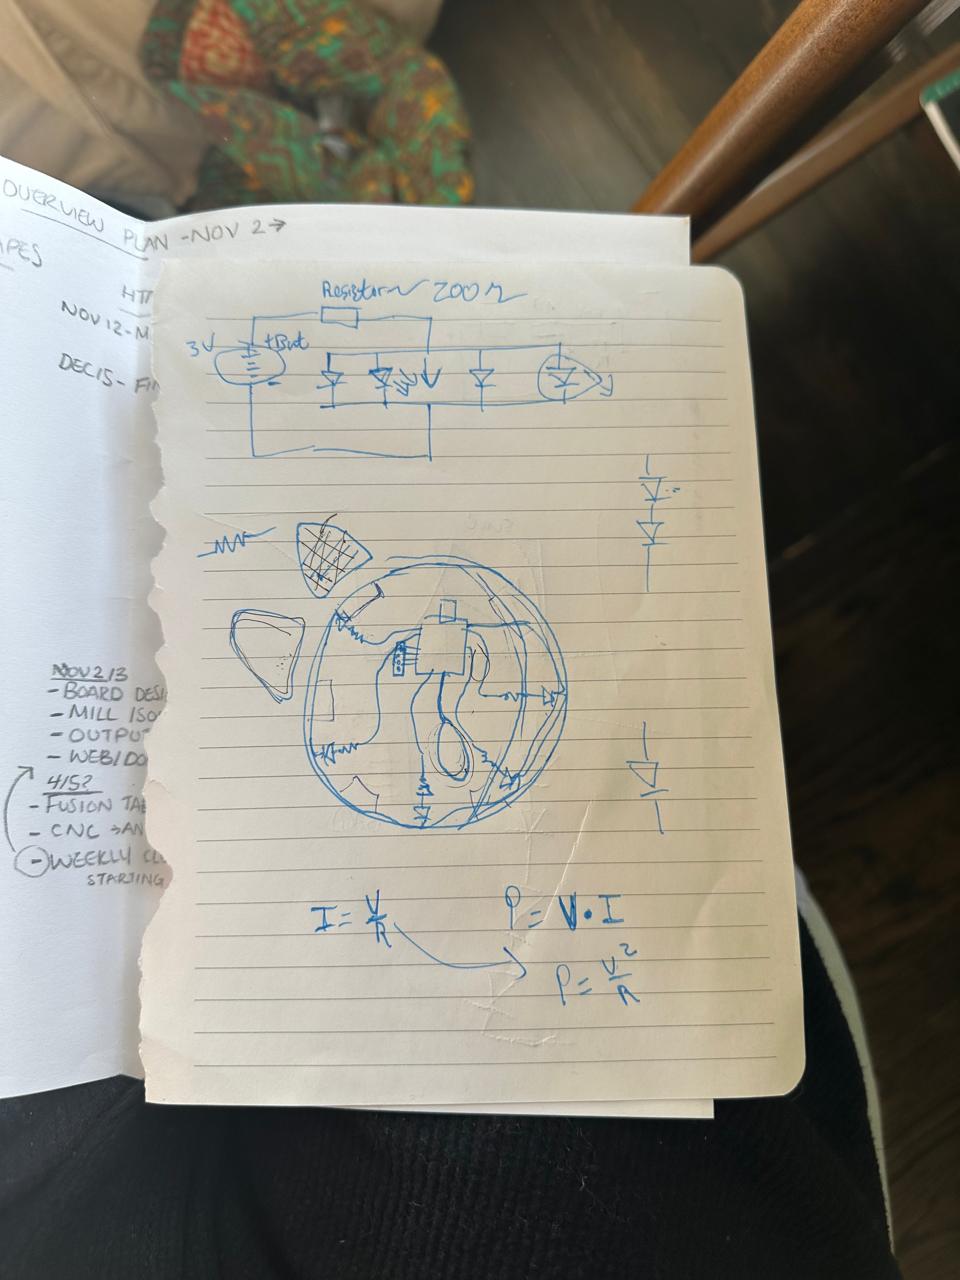 OVERVIEW PLAN - NOV 2 →
NOV 12 - M
DEC 15 - FI
NOV 2/3
- BOARD DESI
- MILL ISO
- OUTPUT
- WEB/DO
4/5?
- FUSION TA
- CNC → AN
- WEEKLY CL
STARTING
Resistor ~ 200 Ω
3V
+ Bat
-
I = V/R
P = V • I
P = V²/R